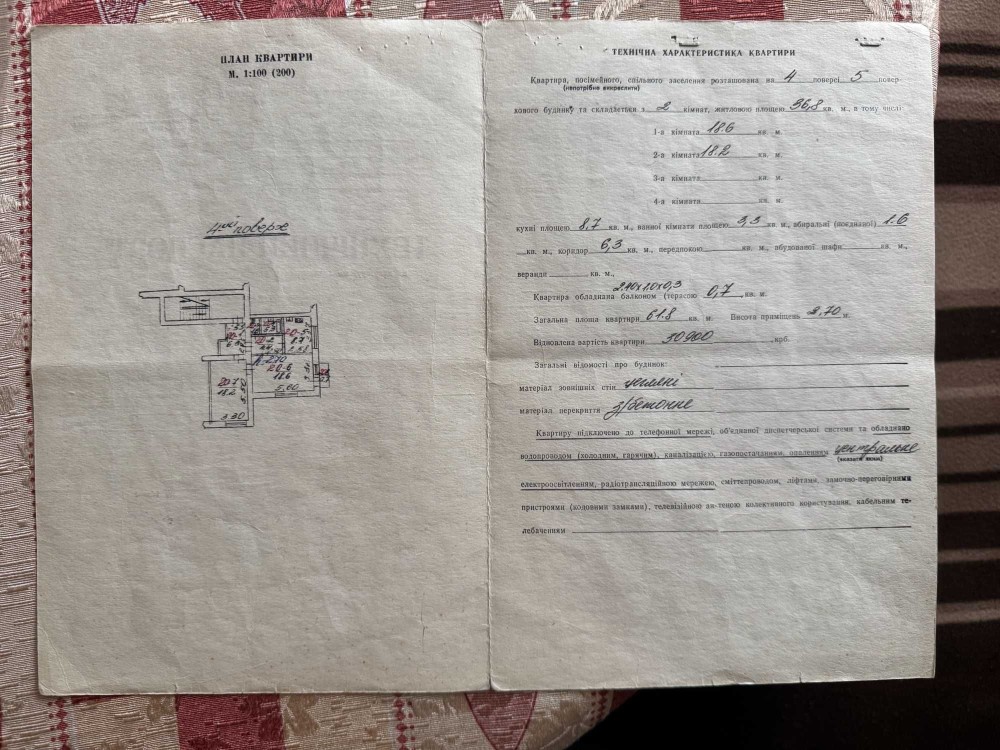 ПЛАН КВАРТИРИ
М. 1:100 (200)
4ий поверх
20-5
8.7
2.70
20-6
18.6
5.60
20-7
18.2
5.50
3.30
ТЕХНІЧНА ХАРАКТЕРИСТИКА КВАРТИРИ
Квартира, посімейного, спільного заселення розташована на 4 поверсі 5 повер-
(непотрібне викреслити)
хового будинку та складається з 2 кімнат, житловою площею 36,8 кв. м., в тому числі
1-а кімната 18.6 кв. м.
2-а кімната 18.2 кв. м.
3-я кімната кв. м.
4-а кімната кв. м.
кухні площею 8,7 кв. м., ванної кімнати площею 3,3 кв. м., вбиральні (поєднаної) 1.6
кв. м., коридор 6,3 кв. м., передпокою кв. м., вбудованої шафи кв. м.,
веранди кв. м.,
2.40х1.0х0,3
Квартира обладнана балконом (терасою 0,7 кв. м.
Загальна площа квартири 61.8 кв. м. Висота приміщень 2,70 м.
Відновлена вартість квартири 30900 крб.
Загальні відомості про будинок:
матеріал зовнішніх стін цегляні
матеріал перекриття з/бетонне
Квартиру підключено до телефонної мережі, об'єднаної диспетчерської системи та обладнано
водопроводом (холодним, гарячим), каналізацією, газопостачанням, опаленням центральне
(вказати яким)
електроосвітленням, радіотрансляційною мережею, сміттепроводом, ліфтами, замочно-переговірними
пристроями (кодовими замками), телевізійною ан-теною колективного користування, кабельним те-
лебаченням